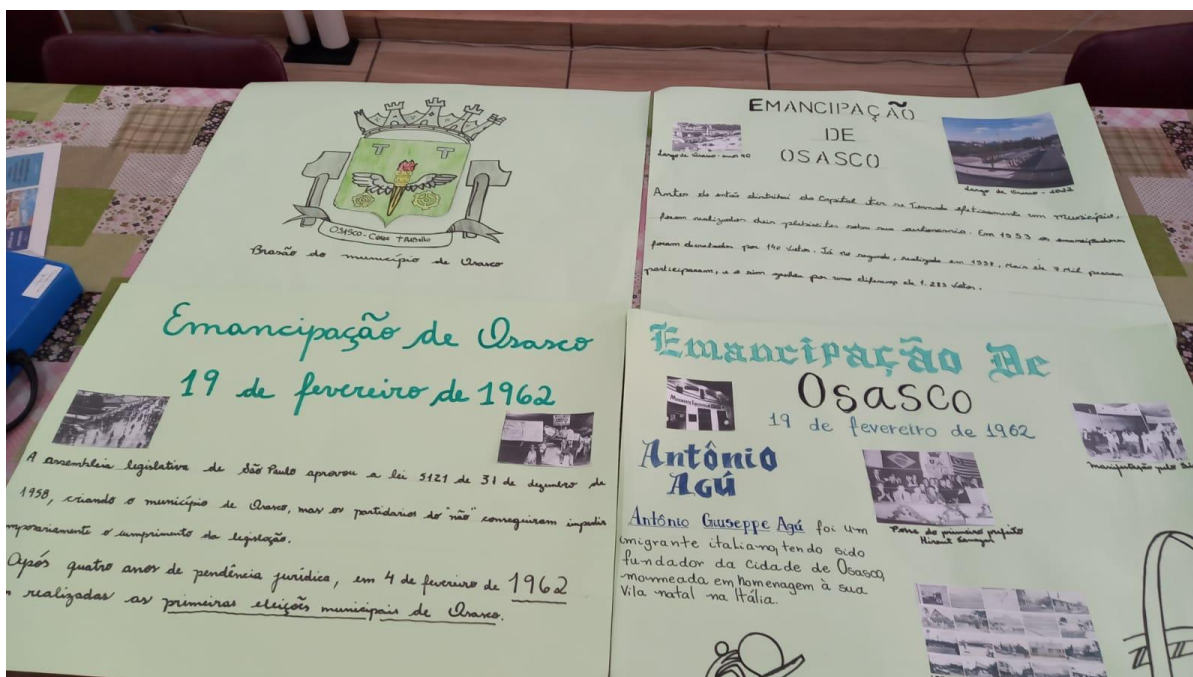 OSASCO - CIDADE TRABALHO
Brasão do município de Osasco
EMANCIPAÇÃO
DE
OSASCO
Largo de Osasco - anos 40
Largo de Osasco - 2022
Antes do então distrito da Capital ter se Tornado efetivamente um município,
foram realizados dois plebiscitos sobre sua autonomia. Em 1953 os emancipadores
foram derrotados por 140 votos. Já no segundo, realizado em 1958, mais de 7 mil pessoas
participaram, e o sim ganhou por uma diferença de 1.283 votos.
Emancipação de Osasco
19 de fevereiro de 1962
A assembleia legislativa de São Paulo aprovou a lei 5121 de 31 de dezembro de
1958, criando o município de Osasco, mas os partidarios do "não" conseguiram impedir
mporariamente o cumprimento da legislação.
Após quatro anos de pendência jurídica, em 4 de fevereiro de 1962
realizadas as primeiras eleições municipais de Osasco.
Emancipação De
Osasco
19 de fevereiro de 1962
Antônio
Agú
Antônio Giuseppe Agú foi um
imigrante italiano, tendo sido
fundador da cidade de Osasco,
nomeada em homenagem à sua
Vila natal na Itália.
Posse do primeiro prefeito
Hirant Sanazar
Manifestação pelo